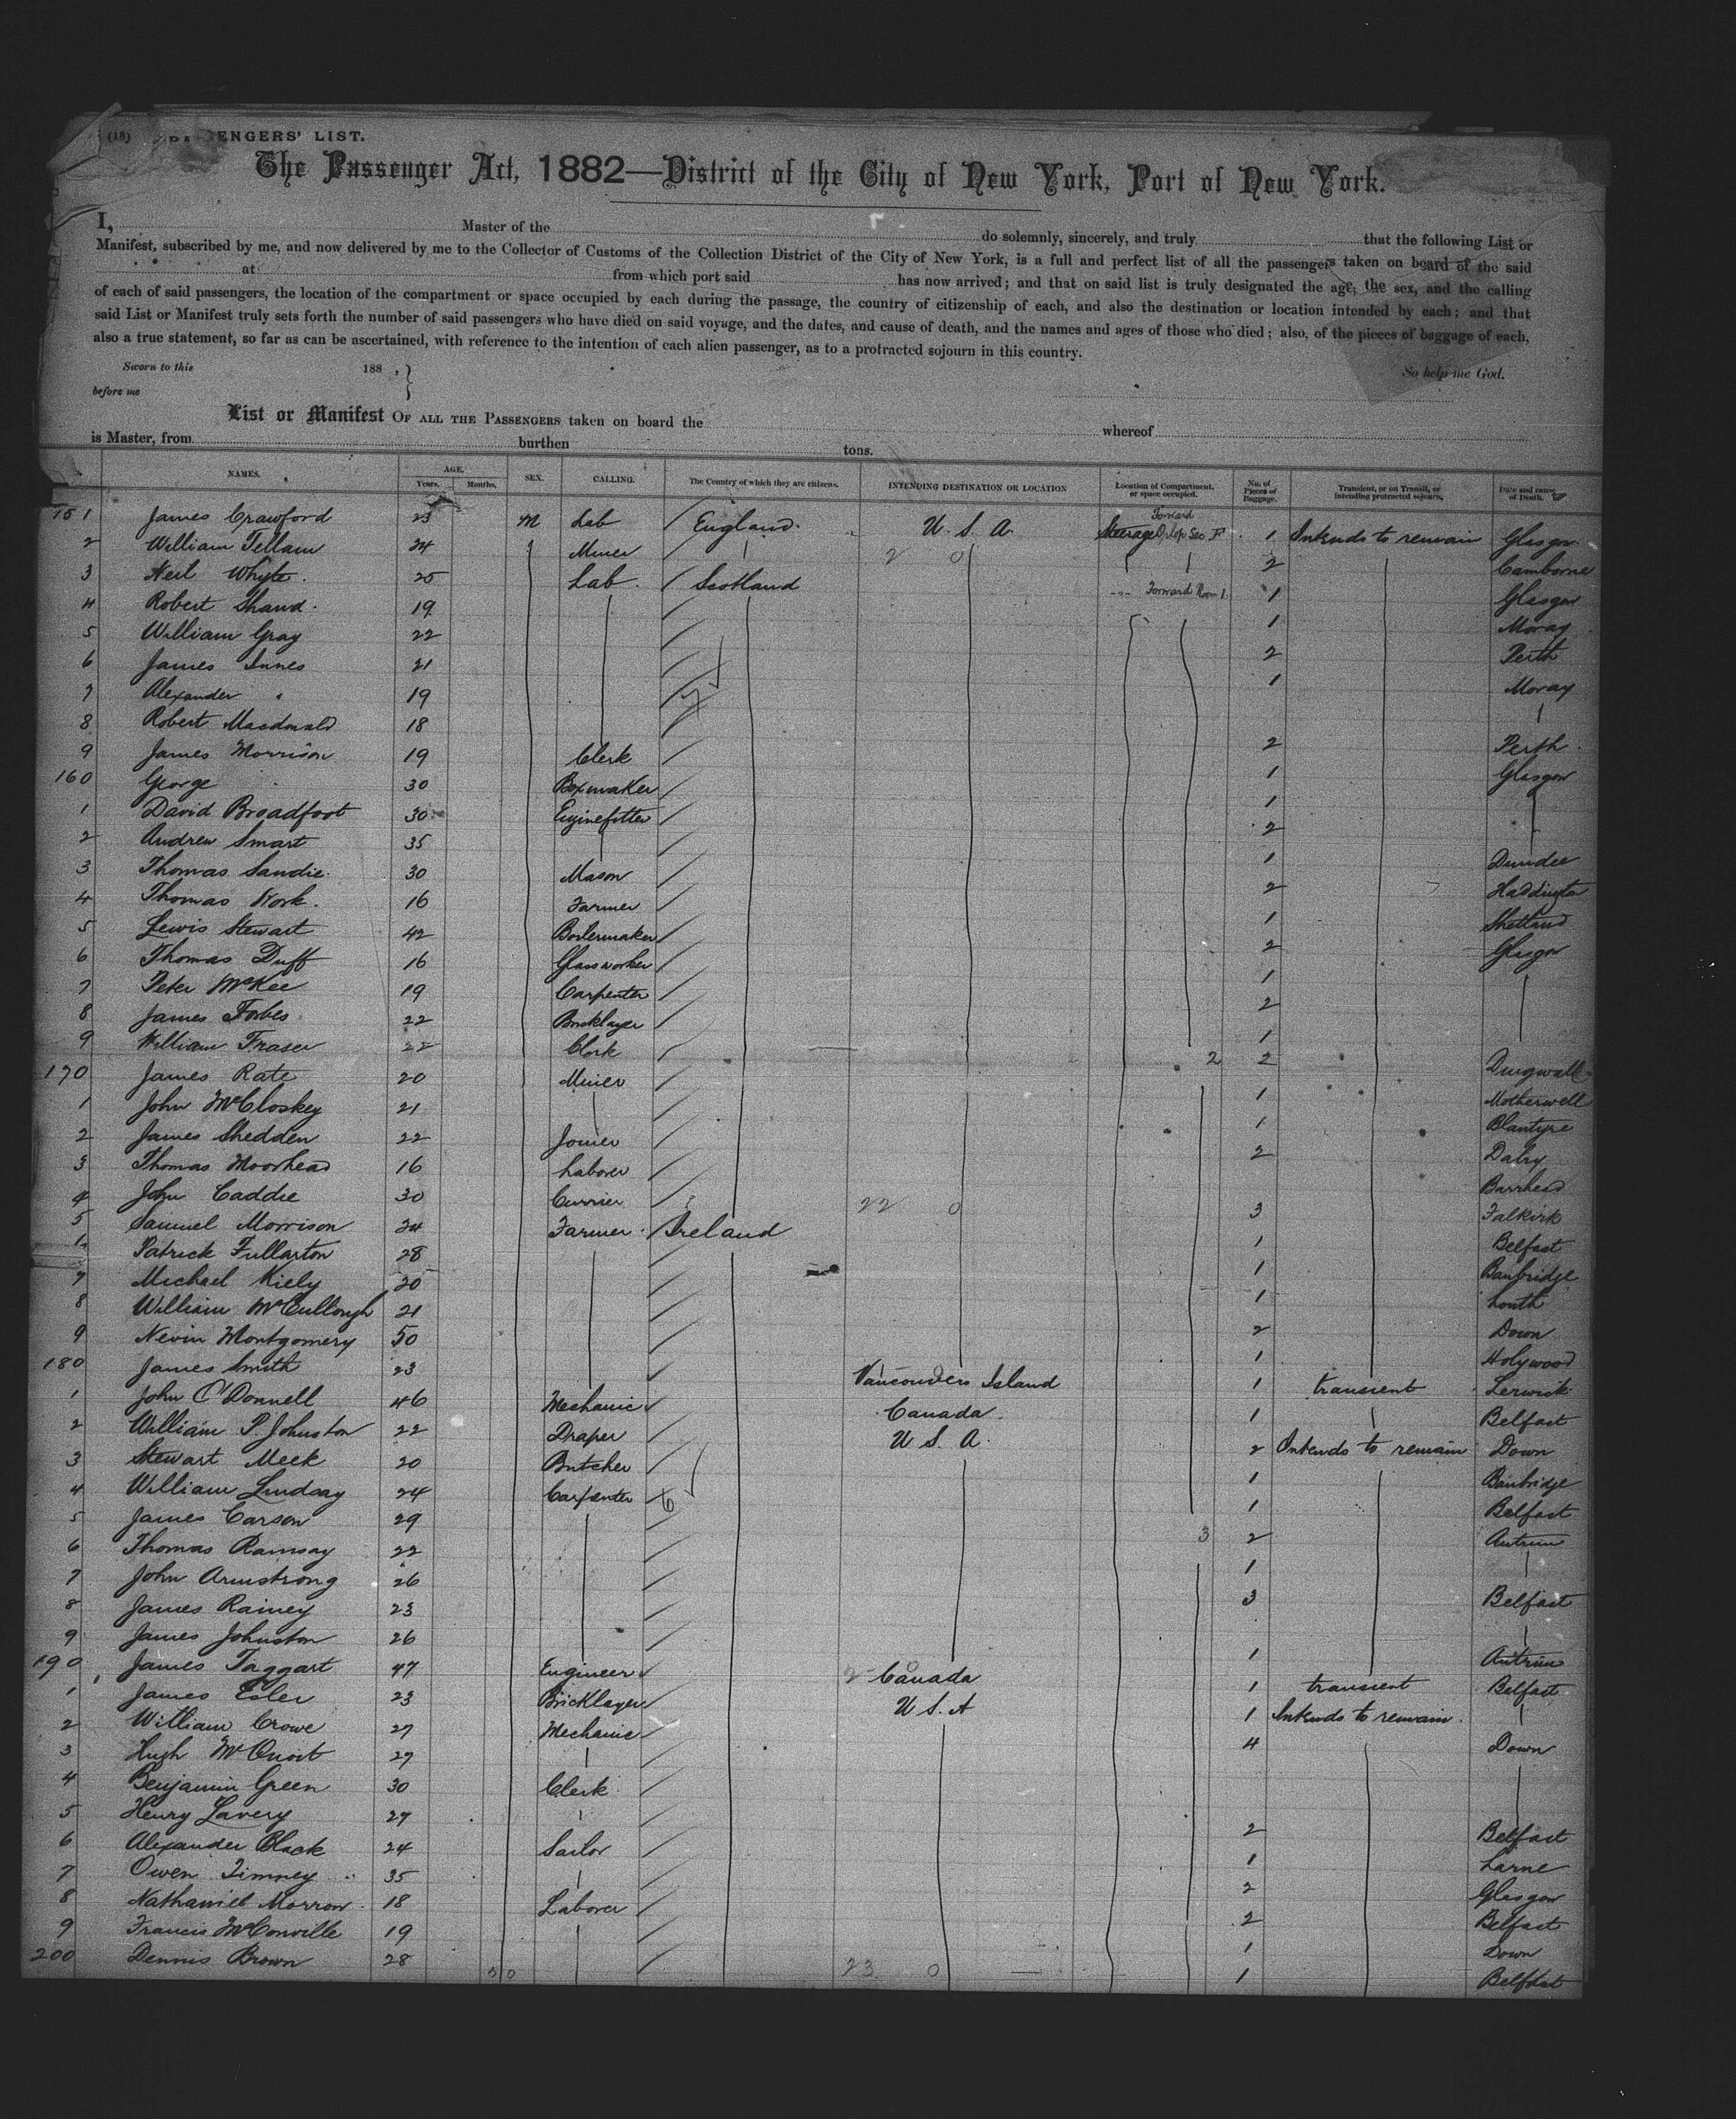 (18) PASSENGERS' LIST.
The Passenger Act, 1882—District of the City of New York, Port of New York.
I, Master of the do solemnly, sincerely, and truly that the following List or
Manifest, subscribed by me, and now delivered by me to the Collector of Customs of the Collection District of the City of New York, is a full and perfect list of all the passengers taken on board of the said
at from which port said has now arrived; and that on said list is truly designated the age, the sex, and the calling
of each of said passengers, the location of the compartment or space occupied by each during the passage, the country of citizenship of each, and also the destination or location intended by each; and that
said List or Manifest truly sets forth the number of said passengers who have died on said voyage, and the dates, and cause of death, and the names and ages of those who died; also, of the pieces of baggage of each,
also a true statement, so far as can be ascertained, with reference to the intention of each alien passenger, as to a protracted sojourn in this country.
Sworn to this 188 , } So help me God.
before me
List or Manifest OF ALL THE PASSENGERS taken on board the whereof
is Master, from burthen tons.
NAMES. AGE. Years. Months. SEX. CALLING. The Country of which they are citizens. INTENDING DESTINATION OR LOCATION Location of Compartment, or space occupied. No. of Pieces of Baggage. Transient, or on Transit, or intending protracted sojourn. Date and cause of Death.
151 James Crawford 23 M Lab England U. S. A. Steerage Forward Orlop Sec F 1 Intends to remain Glasgow
2 William Tellam 24 Miner 2 0 2 Camborne
3 Neil Whyte 25 Lab Scotland Forward Room 1 1 Glasgow
4 Robert Shand 19 1 Moray
5 William Gray 22 2 Perth
6 James Innes 21 1 Moray
7 Alexander " 19
8 Robert Macdonald 18 2 Perth
9 James Morrison 19 Clerk 1 Glasgow
160 George 30 Boxmaker 1
1 David Broadfoot 30 Enginefitter 2
2 Andrew Smart 35 1 Dundee
3 Thomas Sandie 30 Mason 2 Haddington
4 Thomas Work 16 Farmer 1 Shetland
5 Lewis Stewart 42 Boilermaker 2 Glasgow
6 Thomas Duff 16 Glassworker 1
7 Peter McKee 19 Carpenter 2
8 James Forbes 22 Bricklayer 1
9 William Fraser 22 Clerk 2 2 Dingwall
170 James Rate 20 Miner 1 Motherwell
1 John McCloskey 21 1 Blantyre
2 James Shedden 22 Joiner 2 Dalry
3 Thomas Moorhead 16 Laborer Barrhead
4 John Caddie 30 Currier 22 0 3 Falkirk
5 Samuel Morrison 24 Farmer Ireland 1 Belfast
Patrick Fullarton 28 1 Banbridge
7 Michael Kiely 20 1 Louth
8 William McCullough 21 2 Down
9 Nevin Montgomery 50 1 Holywood
180 James Smith 23 Vancouvers Island 1 transient Lerwick
1 John O'Donnell 46 Mechanic Canada 1 Belfast
2 William P. Johnston 22 Draper U. S. A. 2 Intends to remain Down
3 Stewart Meek 20 Butcher 1 Banbridge
4 William Lindsay 24 Carpenter 6 1 Belfast
5 James Carson 29 3 2 Antrim
6 Thomas Ramsay 22 1
7 John Armstrong 26 3 Belfast
8 James Rainey 23
9 James Johnston 26 1 Antrim
190 James Taggart 47 Engineer 2 0 Canada 1 transient Belfast
1 James Esler 23 Bricklayer U. S. A 1 Intends to remain
2 William Crowe 27 Mechanic 4 Down
3 Hugh 27
4 Benjamin Green 30 Clerk
5 Henry Lavery 27 2 Belfast
6 Alexander Black 24 Sailor 1 Larne
7 Owen Timney 35 2 Glasgow
8 Nathaniel Morrow 18 Laborer 2 Belfast
9 Francis McConville 19 1 Down
200 Dennis Brown 28 23 0 1 Belfast